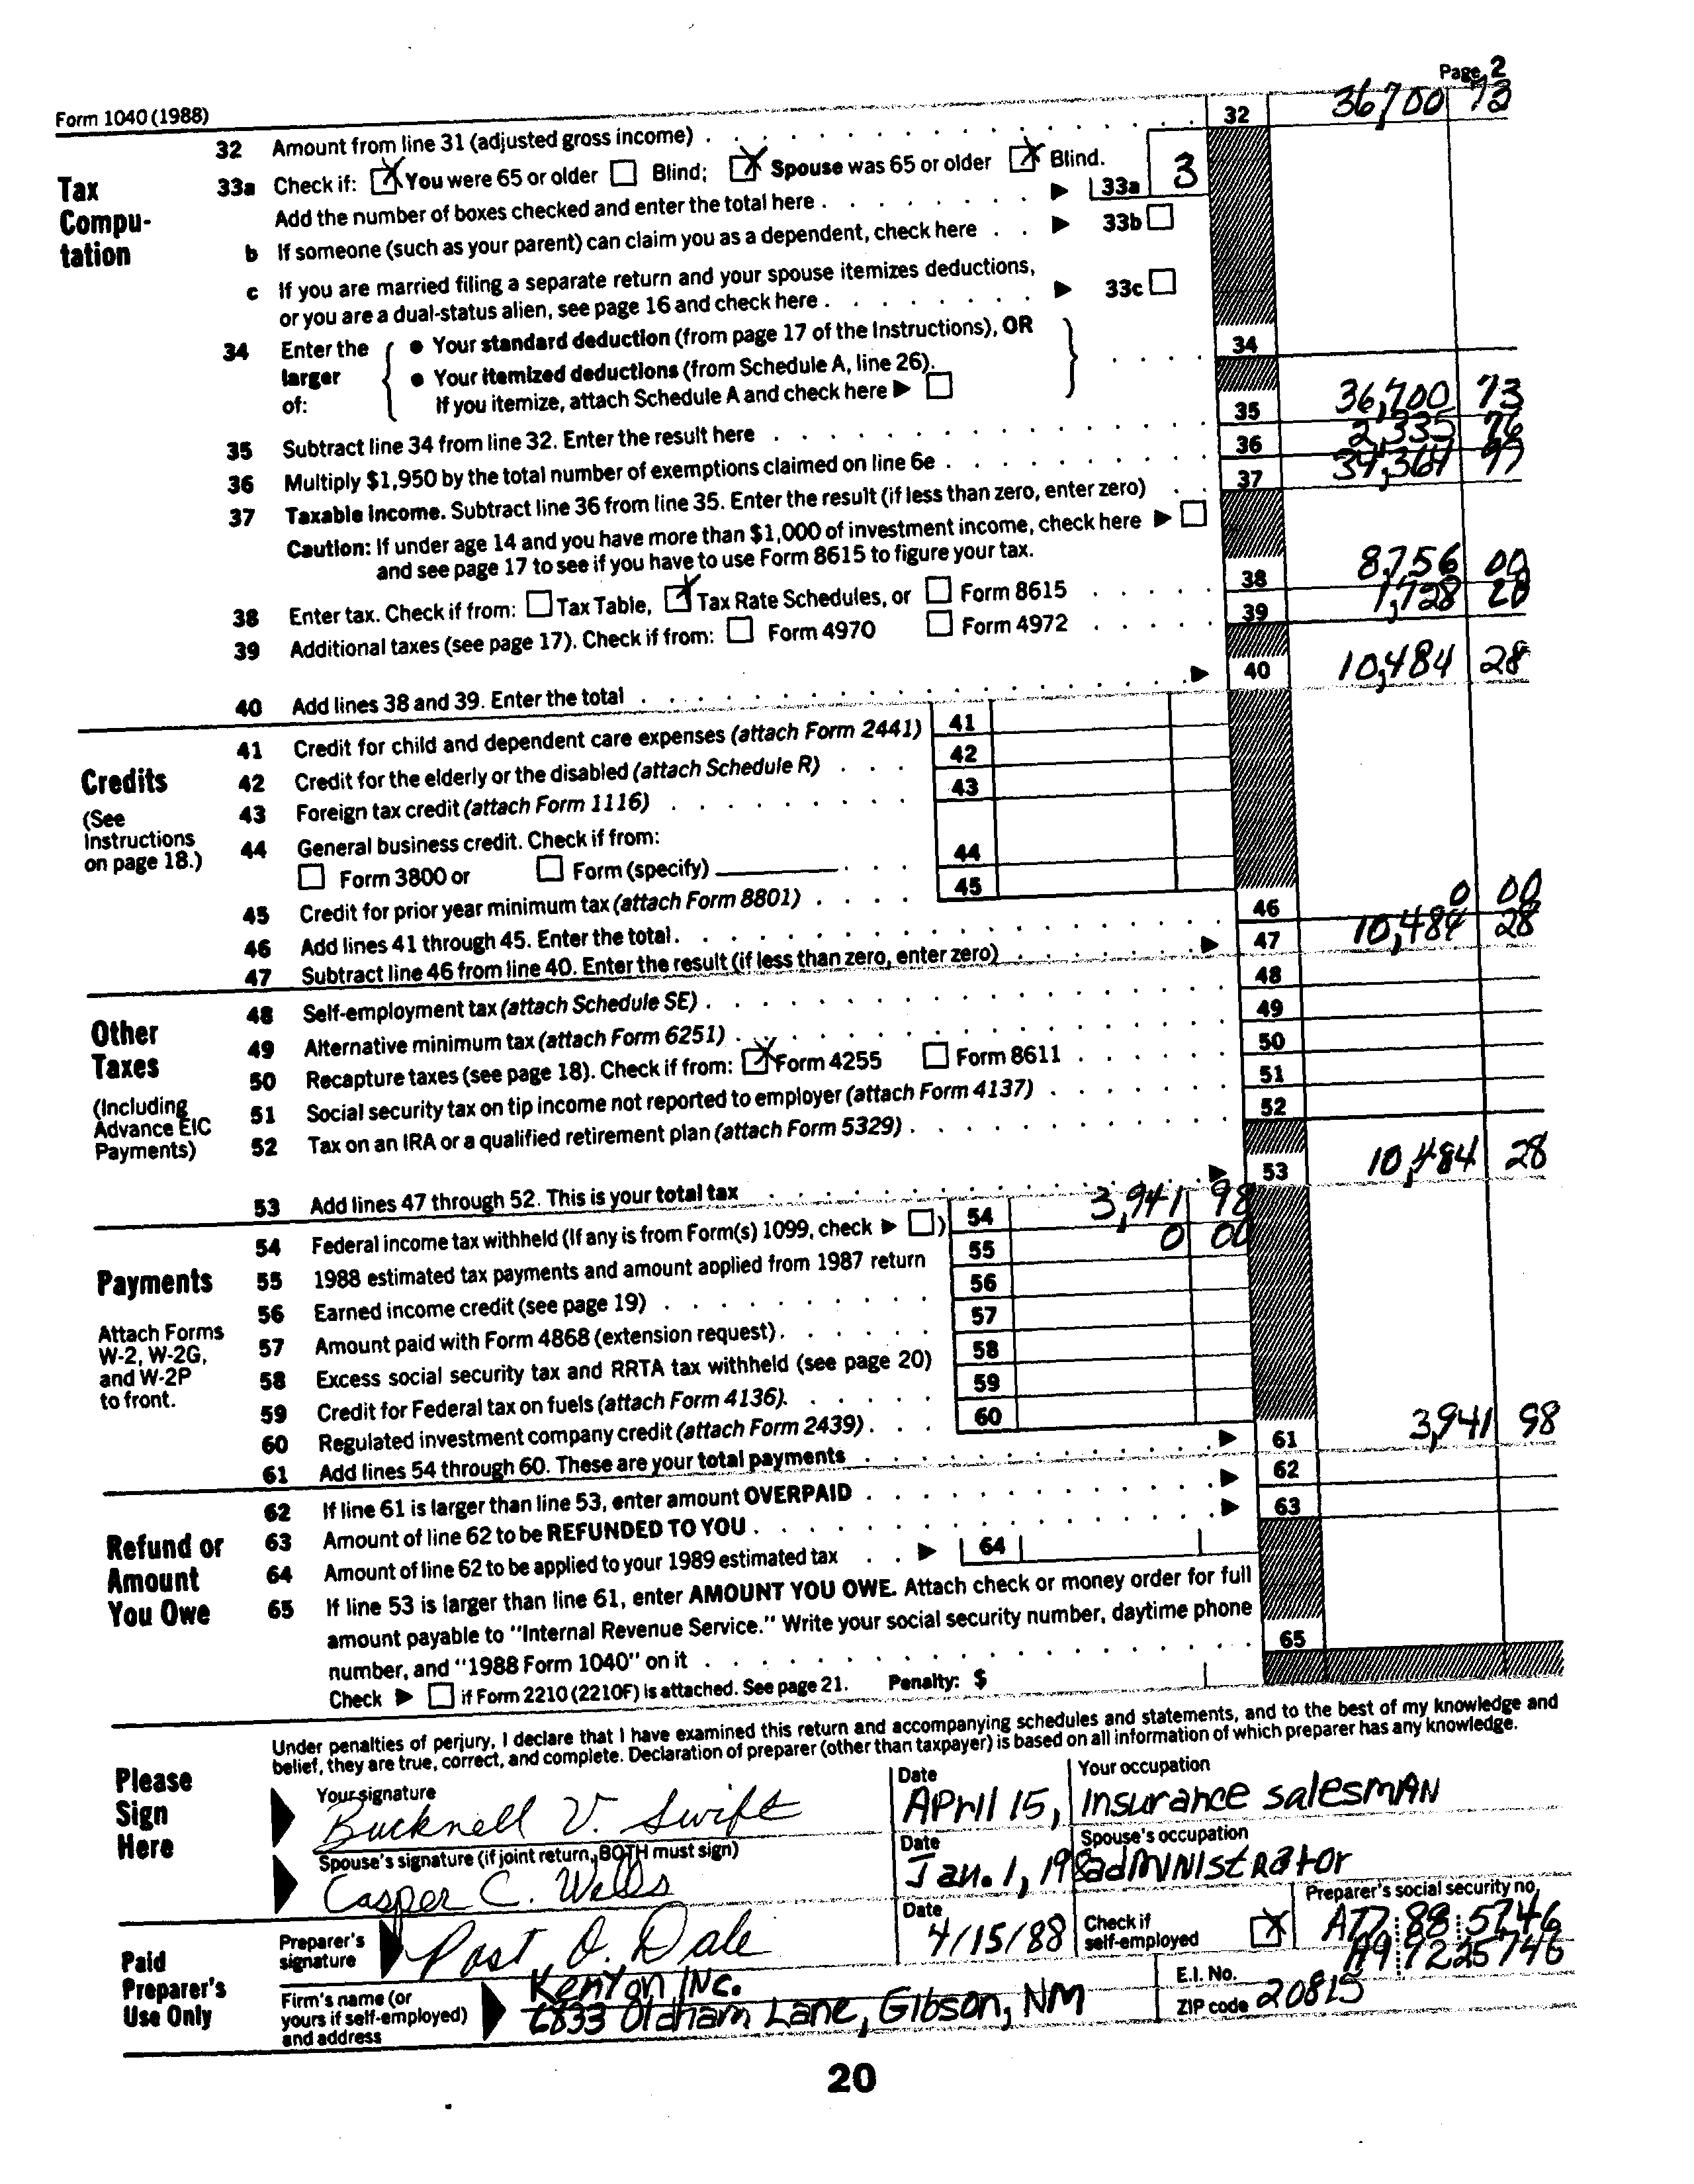 Page 2
Form 1040 (1988)
32 Amount from line 31 (adjusted gross income) 32 36,700 73
Tax Compu- tation
33a Check if: You were 65 or older Blind; Spouse was 65 or older Blind.
Add the number of boxes checked and enter the total here 33a 3
b If someone (such as your parent) can claim you as a dependent, check here 33b
c If you are married filing a separate return and your spouse itemizes deductions,
or you are a dual-status alien, see page 16 and check here 33c
34 Enter the larger of:
• Your standard deduction (from page 17 of the Instructions), OR
• Your itemized deductions (from Schedule A, line 26).
If you itemize, attach Schedule A and check here 34
35 Subtract line 34 from line 32. Enter the result here 35 36,700 73
36 Multiply $1,950 by the total number of exemptions claimed on line 6e 36 2,335 76
37 Taxable income. Subtract line 36 from line 35. Enter the result (if less than zero, enter zero) 37 34,364 97
Caution: If under age 14 and you have more than $1,000 of investment income, check here
and see page 17 to see if you have to use Form 8615 to figure your tax.
38 Enter tax. Check if from: Tax Table, Tax Rate Schedules, or Form 8615 38 8,756 00
39 Additional taxes (see page 17). Check if from: Form 4970 Form 4972 39 1,728 28
40 Add lines 38 and 39. Enter the total 40 10,484 28
Credits
(See Instructions on page 18.)
41 Credit for child and dependent care expenses (attach Form 2441) 41
42 Credit for the elderly or the disabled (attach Schedule R) 42
43 Foreign tax credit (attach Form 1116) 43
44 General business credit. Check if from:
Form 3800 or Form (specify) 44
45 Credit for prior year minimum tax (attach Form 8801) 45
46 Add lines 41 through 45. Enter the total. 46 0 00
47 Subtract line 46 from line 40. Enter the result (if less than zero, enter zero) 47 10,484 28
Other Taxes
(Including Advance EIC Payments)
48 Self-employment tax (attach Schedule SE) 48
49 Alternative minimum tax (attach Form 6251) 49
50 Recapture taxes (see page 18). Check if from: Form 4255 Form 8611 50
51 Social security tax on tip income not reported to employer (attach Form 4137) 51
52 Tax on an IRA or a qualified retirement plan (attach Form 5329) 52
53 Add lines 47 through 52. This is your total tax 53 10,484 28
Payments
Attach Forms W-2, W-2G, and W-2P to front.
54 Federal income tax withheld (If any is from Form(s) 1099, check ) 54 3,941 98
55 1988 estimated tax payments and amount applied from 1987 return 55 0 00
56 Earned income credit (see page 19) 56
57 Amount paid with Form 4868 (extension request) 57
58 Excess social security tax and RRTA tax withheld (see page 20) 58
59 Credit for Federal tax on fuels (attach Form 4136). 59
60 Regulated investment company credit (attach Form 2439) 60
61 Add lines 54 through 60. These are your total payments 61 3,941 98
Refund or Amount You Owe
62 If line 61 is larger than line 53, enter amount OVERPAID 62
63 Amount of line 62 to be REFUNDED TO YOU 63
64 Amount of line 62 to be applied to your 1989 estimated tax 64
65 If line 53 is larger than line 61, enter AMOUNT YOU OWE. Attach check or money order for full
amount payable to "Internal Revenue Service." Write your social security number, daytime phone
number, and "1988 Form 1040" on it 65
Check if Form 2210 (2210F) is attached. See page 21. Penalty: $
Please Sign Here
Under penalties of perjury, I declare that I have examined this return and accompanying schedules and statements, and to the best of my knowledge and
belief, they are true, correct, and complete. Declaration of preparer (other than taxpayer) is based on all information of which preparer has any knowledge.
Your signature Date Your occupation
Bucknell V. Swift April 15, Insurance salesmAN
Spouse's signature (if joint return, BOTH must sign) Date Spouse's occupation
Casper C. Wells Jan. 1, 198 adMINIstRator
Paid Preparer's Use Only
Preparer's signature Post O. Dale Date 4/15/88 Check if self-employed Preparer's social security no.
Firm's name (or yours if self-employed) and address
Kenyon INC.
6833 Oldham Lane, Gibson, NM
E.I. No.
ZIP code 20815
20